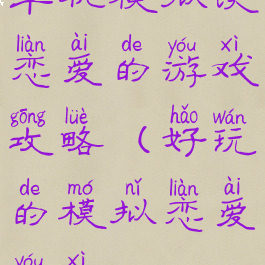 单机模拟谈
liàn ài de yóu xì
恋爱的游戏
gōng lüè hǎo wán
攻略（好玩
de mó nǐ liàn ài
的模拟恋爱
yóu xì